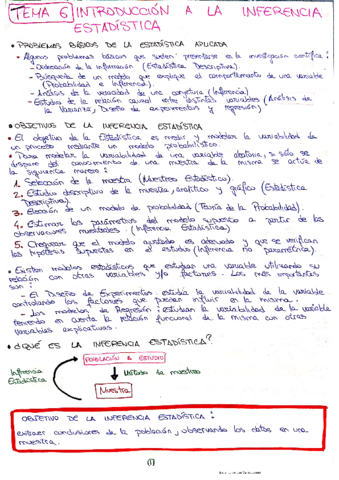 TEMA 6 INTRODUCCIÓN A LA INFERENCIA
ESTADÍSTICA
• PROBLEMAS BÁSICOS DE LA ESTADÍSTICA APLICADA
- Algunos problemas básicos que suelen presentarse en la investigación científica:
- Deducción de la información (Estadística Descriptiva).
- Búsqueda de un modelo que explique el comportamiento de una variable
(Probabilidad e Inferencia).
- Análisis de la veracidad de una conjetura (Inferencia)
- Estudio de la relación causal entre distintas variables (Análisis de
la Varianza, Diseño de experimentos y regresión).
• OBJETIVOS DE LA INFERENCIA ESTADÍSTICA
• El objetivo de la Estadística es medir y modelar la variabilidad de
un proceso mediante un modelo probabilístico.
• Para modelar la variabilidad de una variable aleatoria, si sólo se
dispone del conocimiento de una muestra de la misma se actúa de
la siguiente manera:
1. Selección de la muestra (Muestreo Estadístico).
2. Estudio descriptivo de la muestra, analítico y gráfico (Estadística
Descriptiva).
3. Elección de un modelo de probabilidad (Teoría de la Probabilidad).
4. Estimar los parámetros del modelo supuesto a partir de las
observaciones muestrales. (Inferencia Estadística).
5. Chequear que el modelo ajustado es adecuado y que se verifican
las hipótesis supuestas en el estudio (Inferencia no paramétrica).
• Existen modelos estadísticos que estudian una variable utilizando su
relación con otras variables y/o factores. Los más importantes
son:
- El Diseño de Experimentos: estudia la variabilidad de la variable
controlando los factores que pueden influir en la misma.
- Los modelos de Regresión: estudian la variabilidad de la variable
teniendo en cuenta la relación funcional de la misma con otras
variables explicativas.
• ¿QUÉ ES LA INFERENCIA ESTADÍSTICA?
POBLACIÓN A ESTUDIO
Inferencia
Estadística
Método de muestreo
Muestra
OBJETIVO DE LA INFERENCIA ESTADÍSTICA:
extraer conclusiones de la población, observando los datos en una
muestra.
(1)